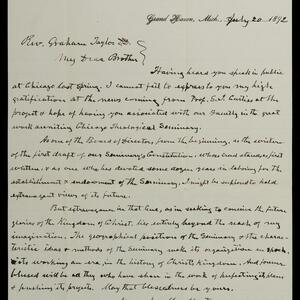 Grand Haven, Mich., July 20 1892
Rev. Graham Taylor
My Dear Brother
Having heard you speak in public
at Chicago last Spring, I cannot fail to express to you my high
gratification at the news coming from Prof. Curtiss at the
project & hope of having you associated with our Faculty in the great
work awaiting Chicago Theological Seminary.
As one of the Board of Directors from the beginning, as the writer
of the first draft of our Seminary's Constitution, whose
written, & as one who has devoted some dozen years in laboring for the
establishment & endowment of the Seminary, I might be expected to hold
extravagant views of its future.
But extravagance in that end, as in seeking to conceive the future
glories of the Kingdom of Christ, lies entirely beyond the reach of my
imagination. The geographical position of the Seminary & the characteristic
ideas & methods of the Seminary made its organization an
era in the history of Christ's Kingdom. And forever
blessed will be all they who have share in the work of perfecting its plans
& pushing its projects. May that blessedness be yours.